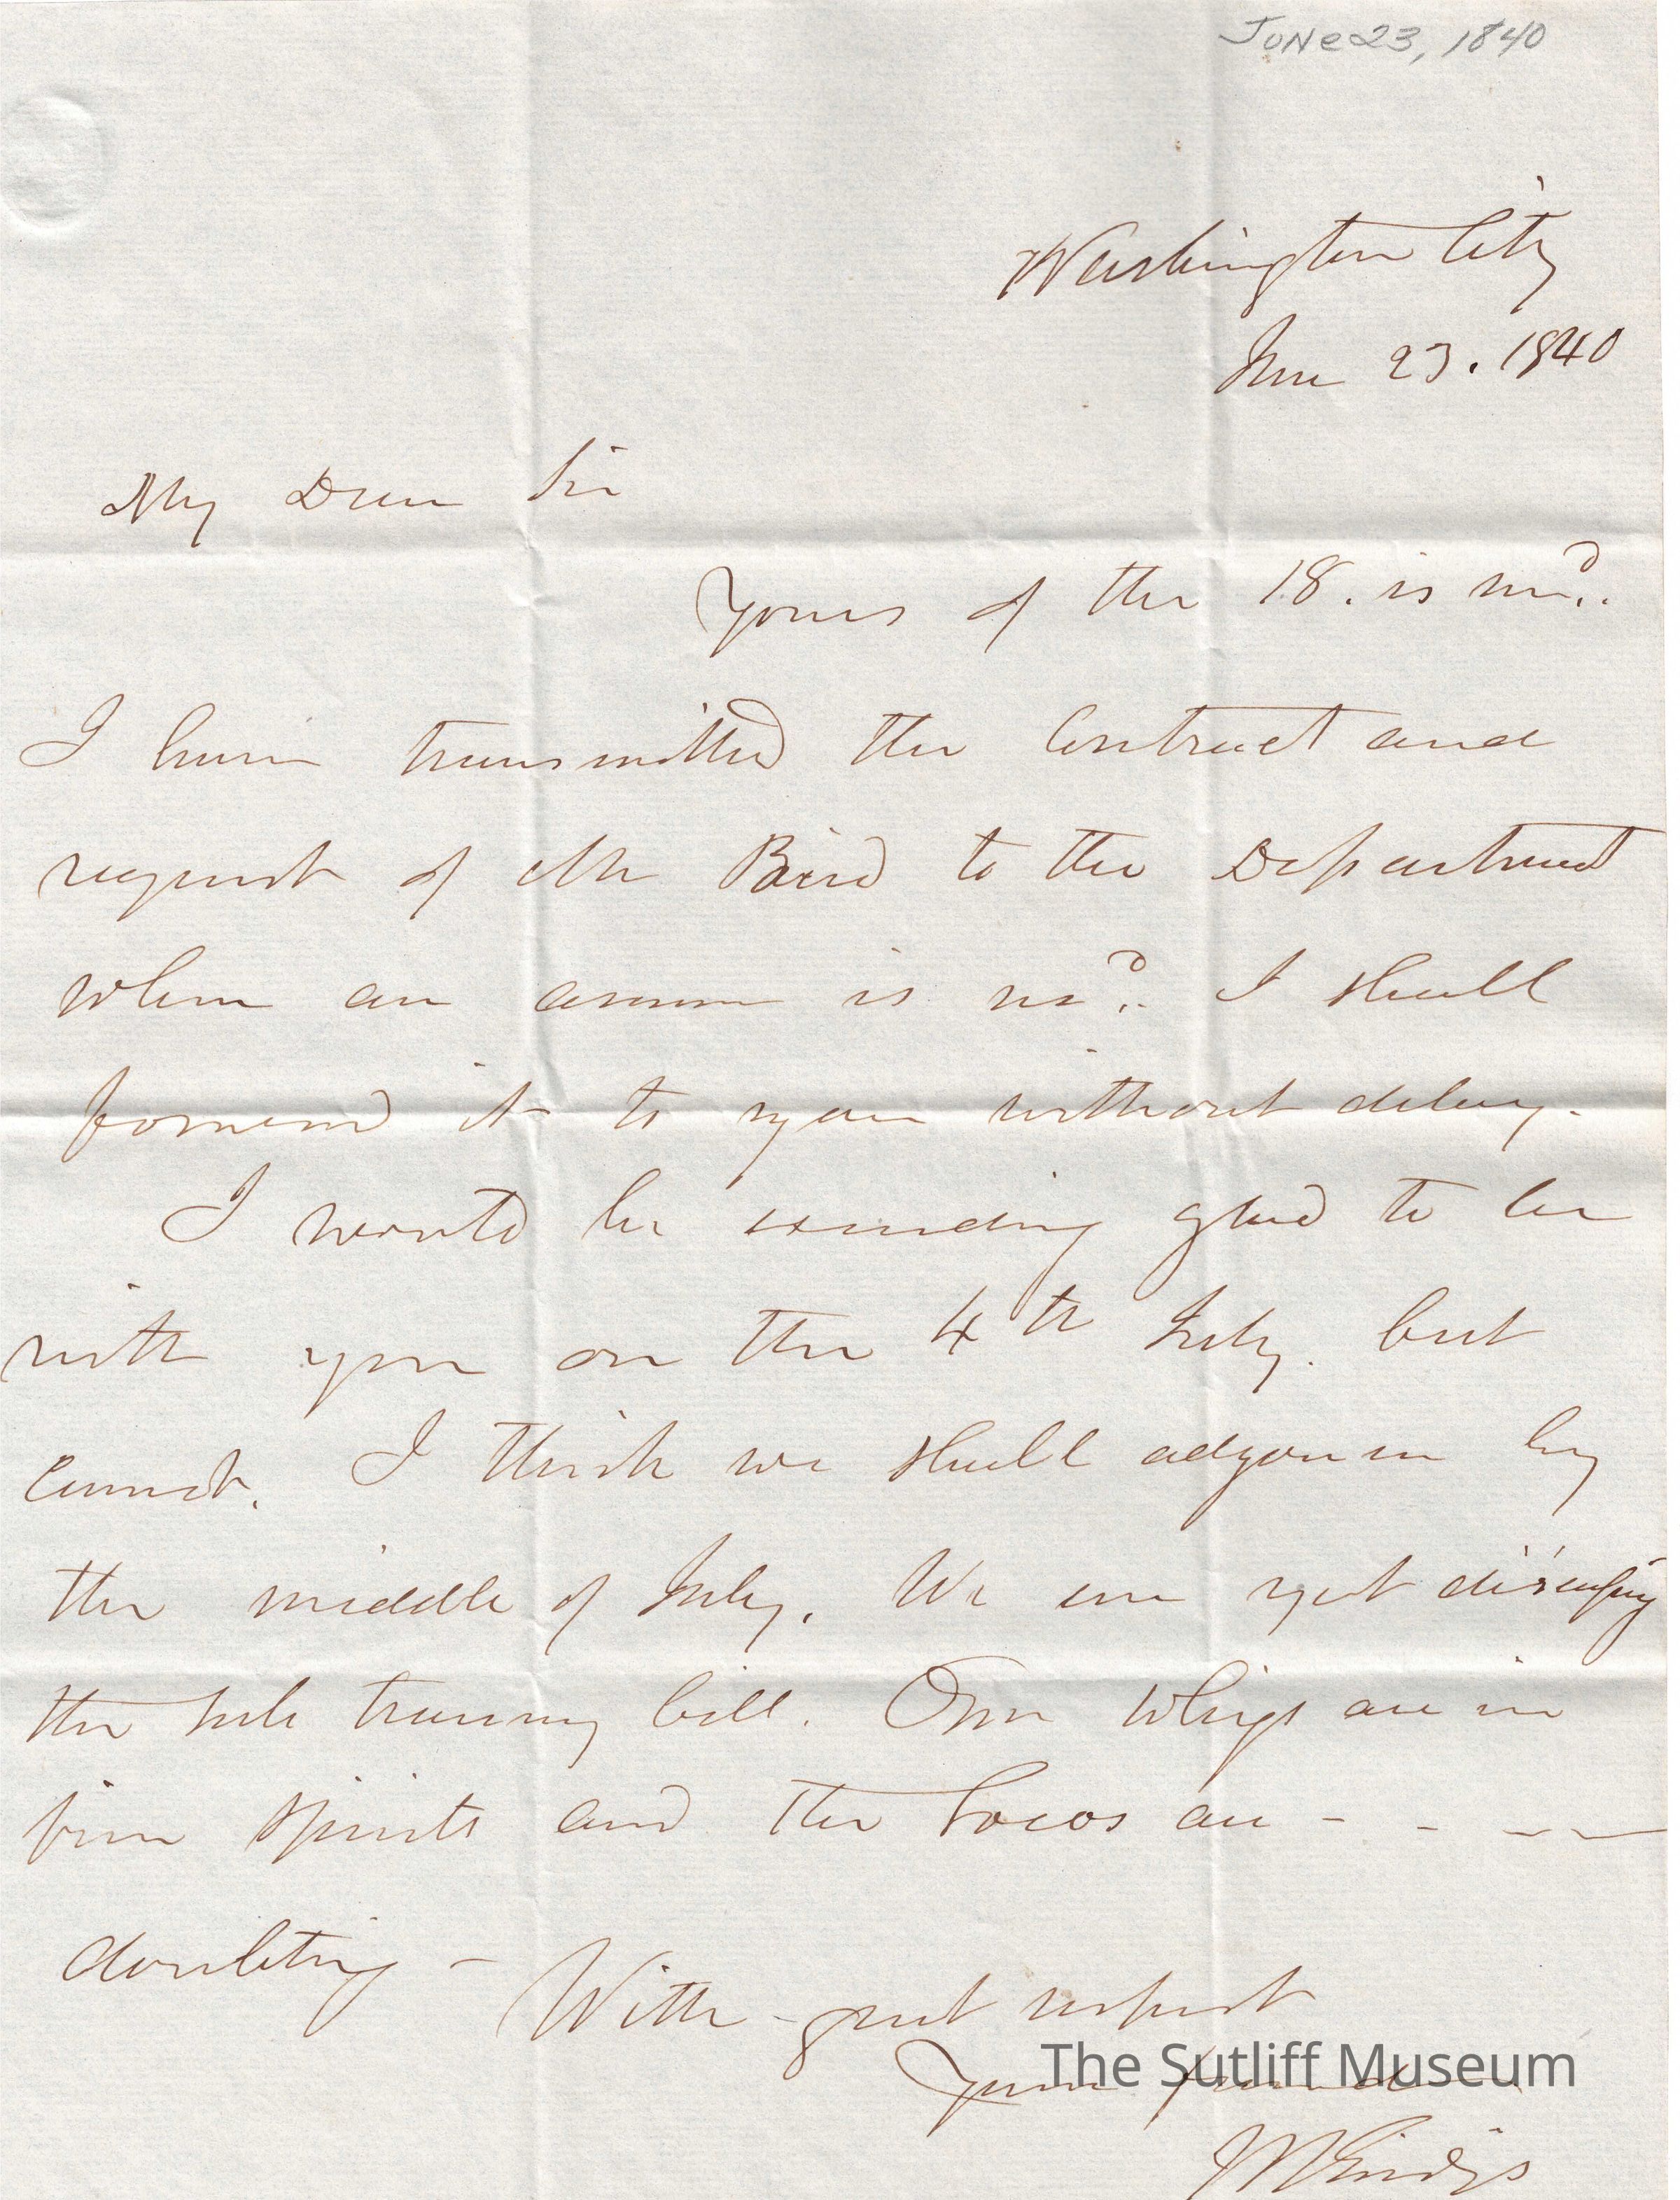 JUNe 23, 1840
Washington City
June 23. 1840
My Dear Sir
Yours of the 18. is recd..
I have transmitted the Contract and
request of Mr Baird to the Department
when an answer is recd.. I shall
forward it to you without delay.
I would be exceeding glad to be
with you on the 4th July. but
cannot. I think we shall adjourn by
the middle of July. We are yet discussing
the sub treasury bill. Our Whigs are in
fine spirits and the Locos are - - - -
doubting -
With great respect
Your friend
J R Giddings
The Sutliff Museum